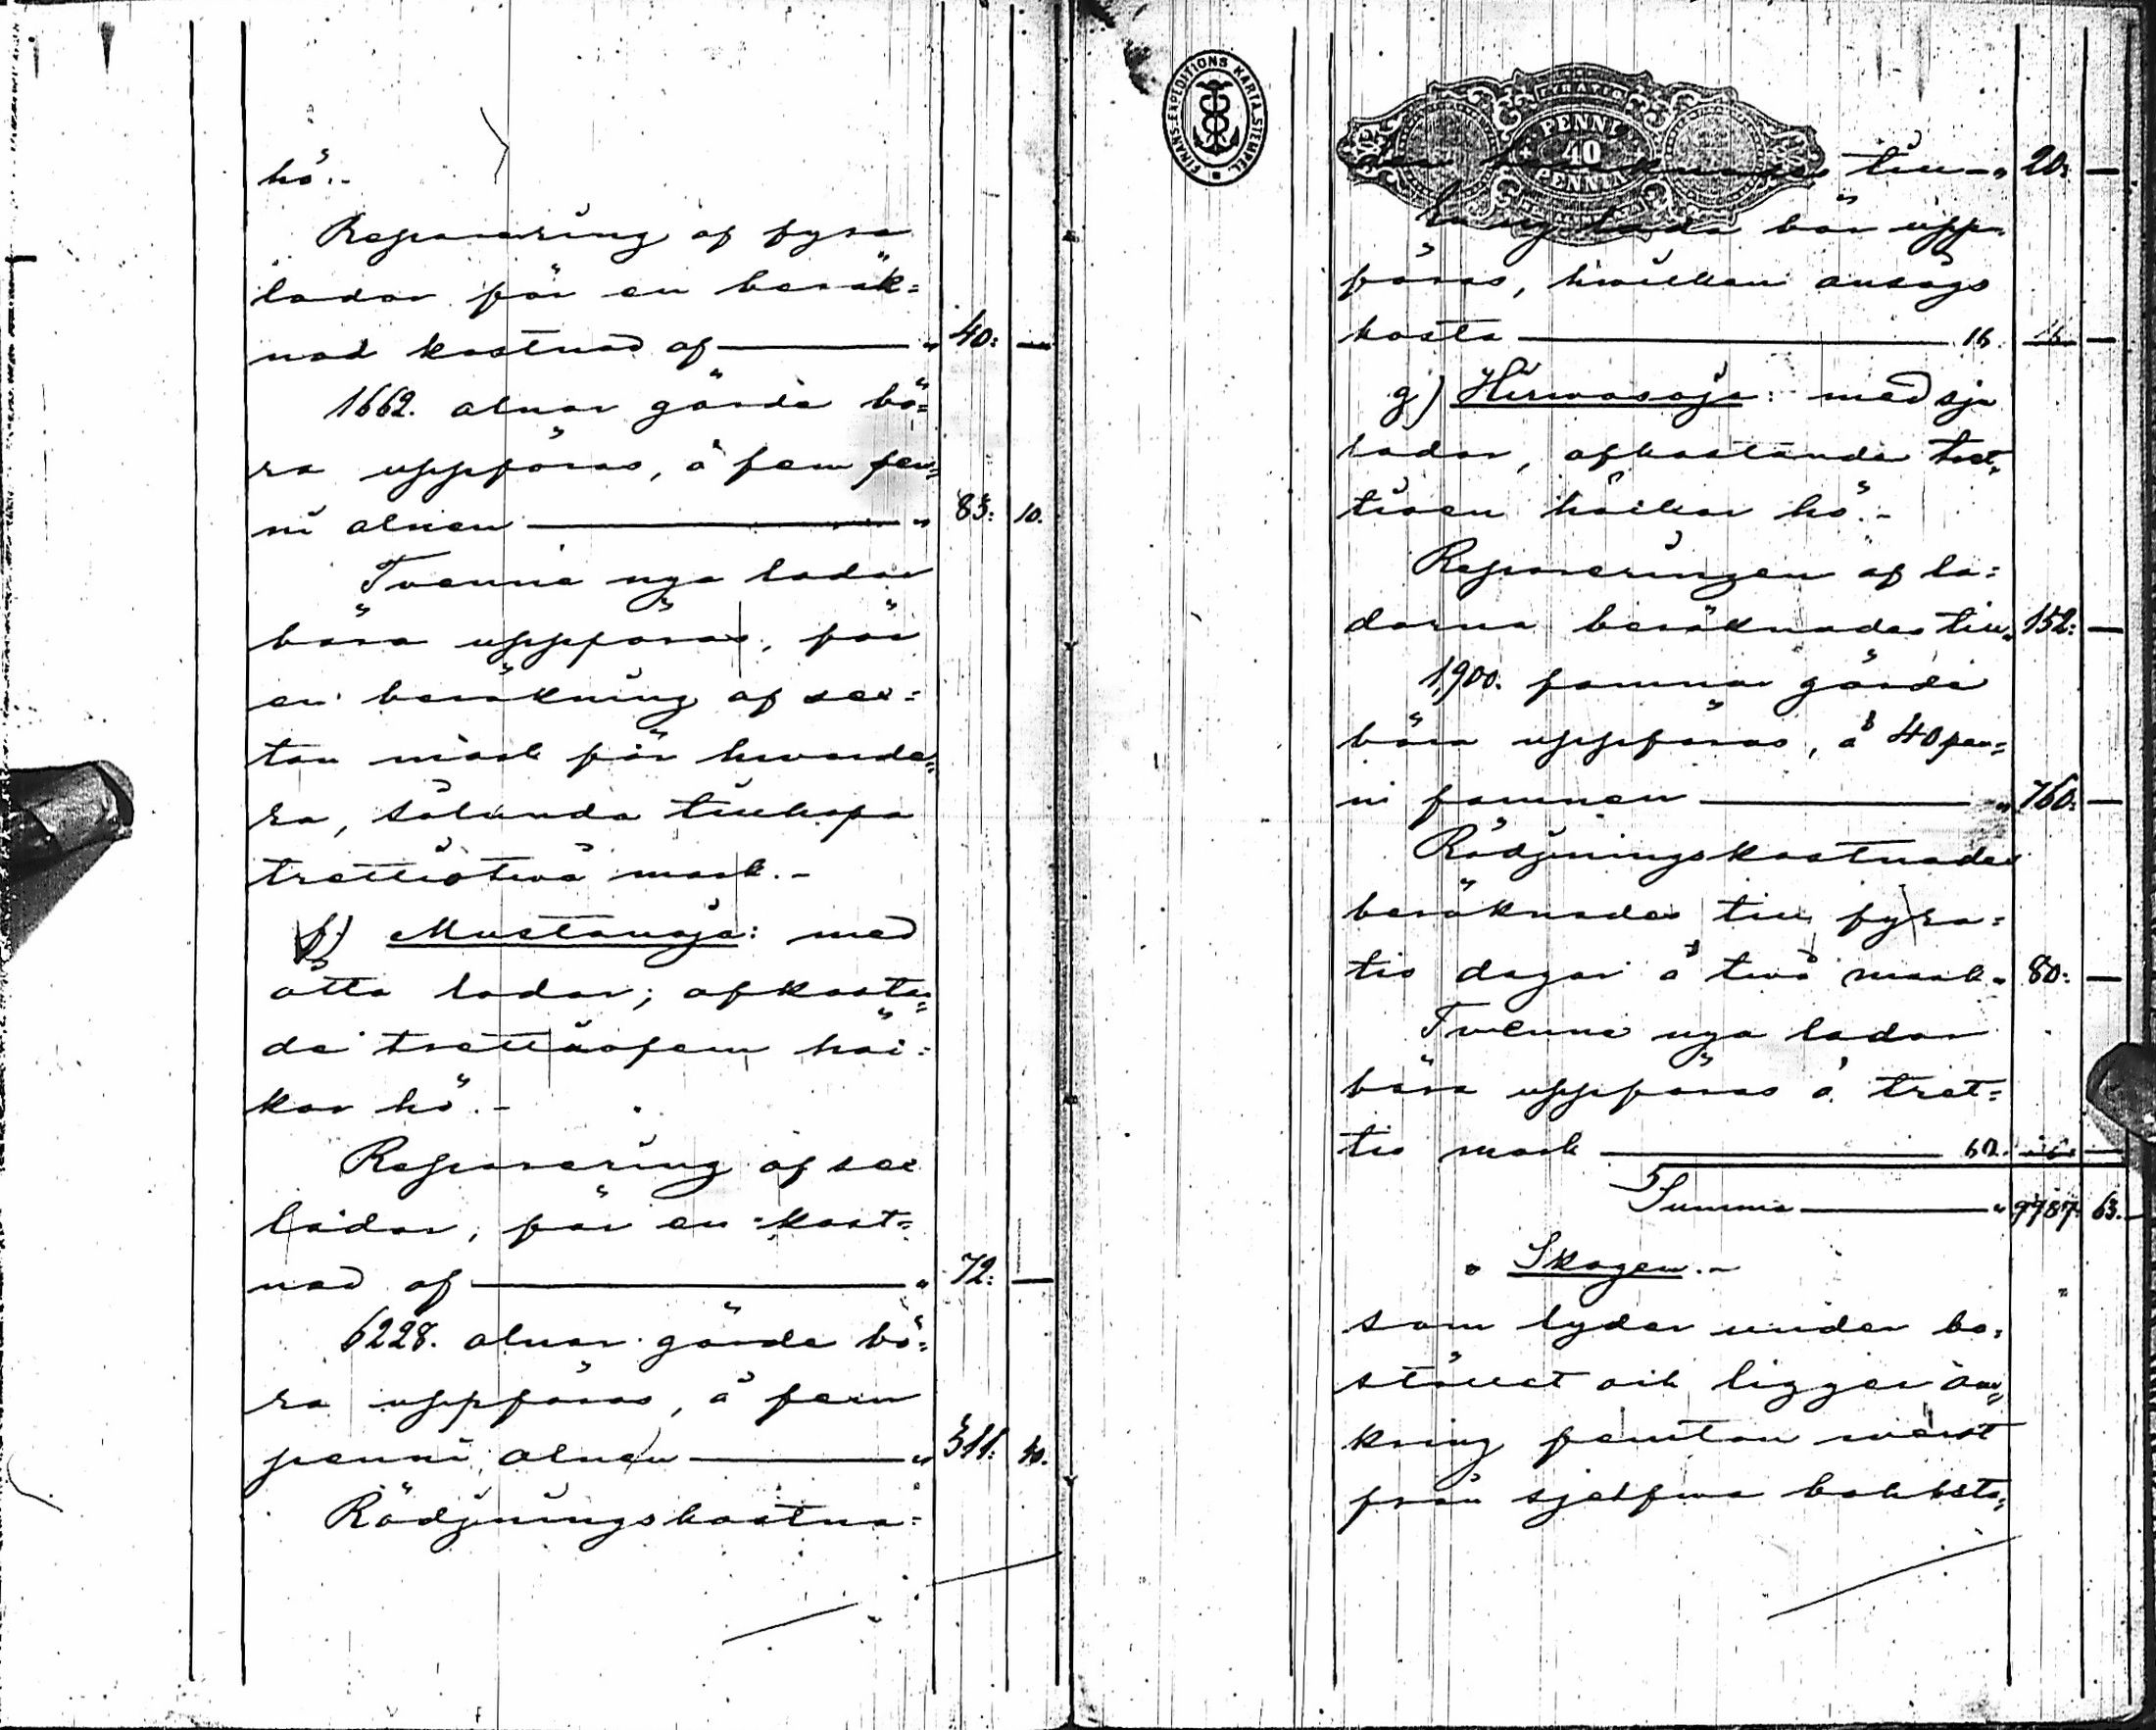 hö.-
Reparering af fyra
lador för en beräk=
nad kostnad af — " 40: —
1662. alnar gärde bö=
ra uppföras, à fem pen=
ni alnen — " 83: 10.
Tvenne nya lador
böra uppföras, för
en beräkning af sex=
ton mark för hvarde=
ra, sålunda tillhopa
trettiotvå mark.-
f) Mustanoja: med
åtta lador; afkastan=
de trettiofem häc=
kar hö.-
Reparering af sex
lador, för en kost=
nad af — " 72: —
6228. alnar gärde bö=
ra uppföras, à fem
penni alnen — " 311: 40.
Rödjningskostna=
FINANS-EXPEDITIONS KARTA STEMPEL
PENNI
40
PENNIÄ
den beräknades till — " 20: —
En ny lada bör upp=
föras, hvilken ansågs
kosta — 16. —
g) Hirvasoja: med sju
lador, afkastande tret=
tioen häckar hö.-
Repareringen af la=
dorna beräknades till " 152: —
1,900. famnar gärde
böra uppföras, à 40 pen=
ni famnen — " 760: —
Rödjningskostnaden
beräknades till fyra=
tio dagar à två mark " 80: —
Tvenne nya lador
böra uppföras à tret=
tio mark — 60. —
Summa — " 9787: 63.
Skogen.-
som lyder under bo=
stället och ligger om=
kring femton verst
från sjelfva bolsta=